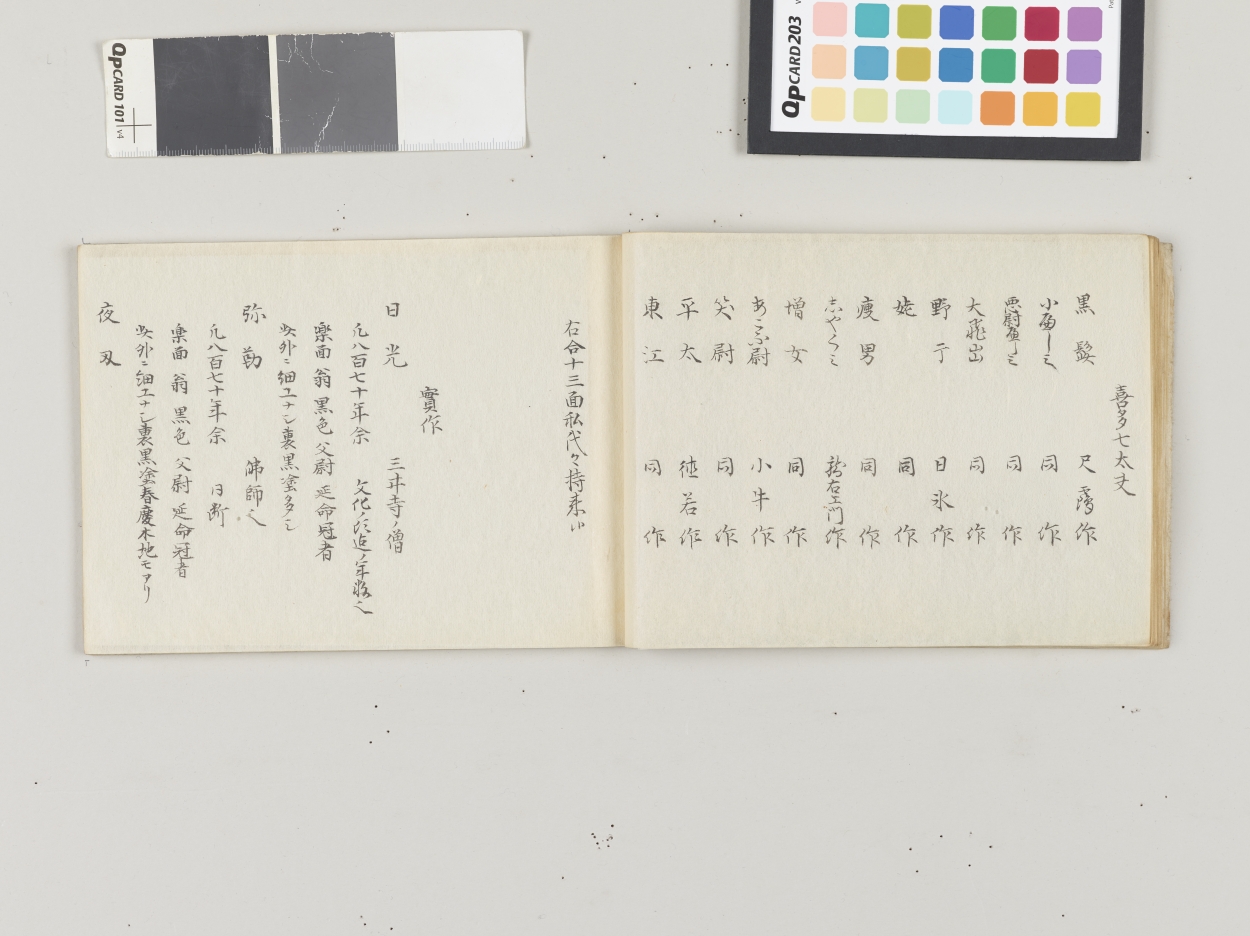 喜多七太夫
黒髭 尺 作
小 しミ 同 作
悪尉 しミ 同 作
大飛出 同 作
野干 日氷作
姥 同 作
痩男 同 作
志やくミ 右エ門作
増女 同 作
あこふ尉 小牛作
笑尉 同 作
平太 徳若作
東江 同 作
右合十三面私代々持来
實作
日光 三井寺ノ僧
凡八百七十年余 文化ノ頃迄ノ年数也
楽面 翁 黒色 父尉 延命冠者
此外ニ細工ナシ裏黒塗多シ
弥勒 佛師也
凡八百七十年余 日断
楽面 翁 黒色 父尉 延命冠者
此外ニ細工ナシ裏黒塗春慶木地モアリ
夜叉
QPCARD 101 v4
QPCARD 203